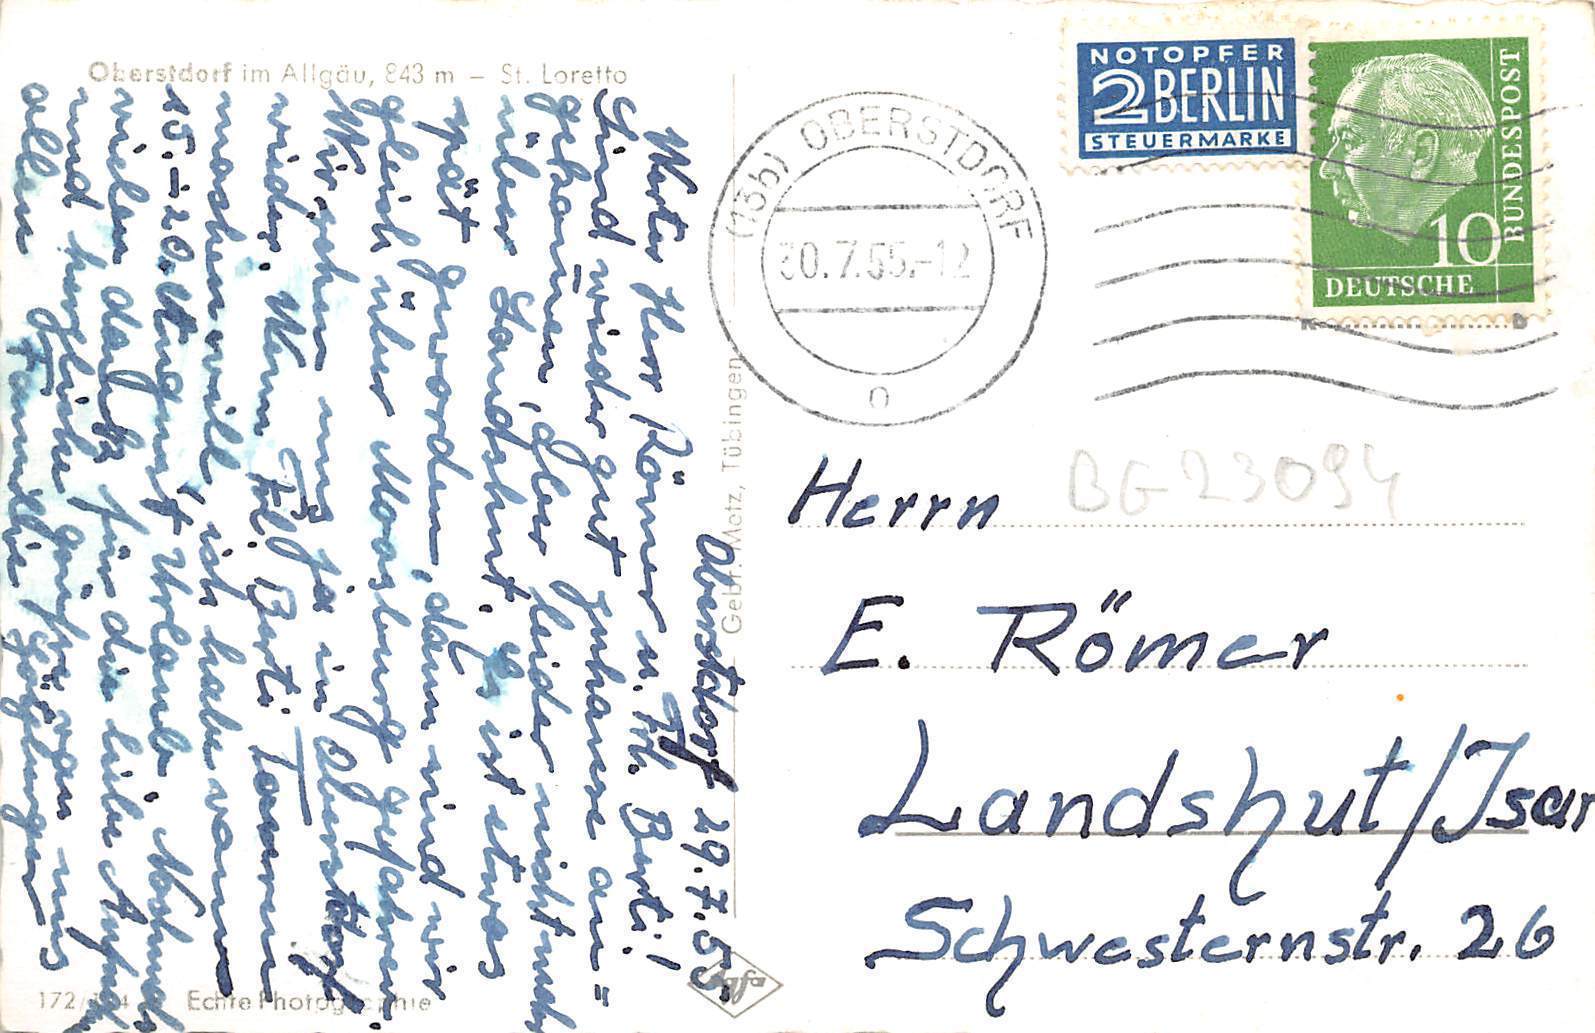 Oberstdorf im Allgäu, 843 m – St. Loretto
Oberstdorf 29.7.55.
Werter Herr Römer u. Frl. Berti!
Sind wieder gut zuhause an=
gekommen, aber leider nicht mehr
über Landshut. Es ist etwas
spät geworden, dann sind wir
gleich über Moosburg gefahren.
Wir sehen uns ja in Oberstdorf
wieder. Wenn Frl. Berti kommen
will, ich habe vom
15.–20. August Urlaub. Nochmals
vielen Dank für die liebe Aufnahme
und herzliche Grüße von uns
allen Familie
172/ Echte Photographie
Gebr. Metz, Tübingen
NOTOPFER
2 BERLIN
STEUERMARKE
10
DEUTSCHE
BUNDESPOST
(13b) OBERSTDORF
30.7.55.-12
o
BG23094
Herrn
E. Römer
Landshut/Isar
Schwesternstr. 26